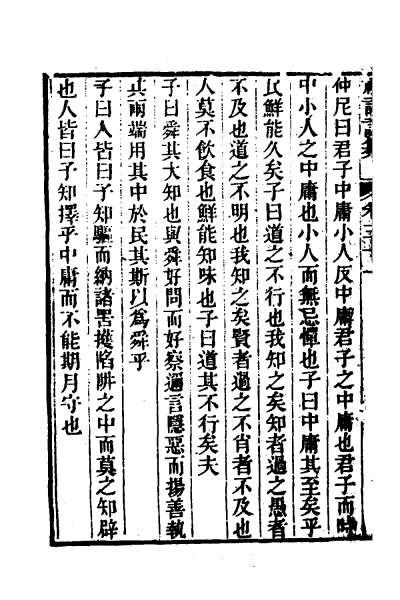 仲尼曰君子中庸小人反中庸君子之中庸也君子而時
中小人之中庸也小人而無忌憚也子曰中庸其至矣乎
民鮮能久矣子曰道之不行也我知之矣知者過之愚者
不及也道之不明也我知之矣賢者過之不肖者不及也
人莫不飲食也鮮能知味也子曰道其不行矣夫
子曰舜其大知也與舜好問而好察邇言隱惡而揚善執
其兩端用其中於民其斯以爲舜乎
子曰人皆曰予知驅而納諸罟擭陷阱之中而莫之知辟
也人皆曰予知擇乎中庸而不能期月守也